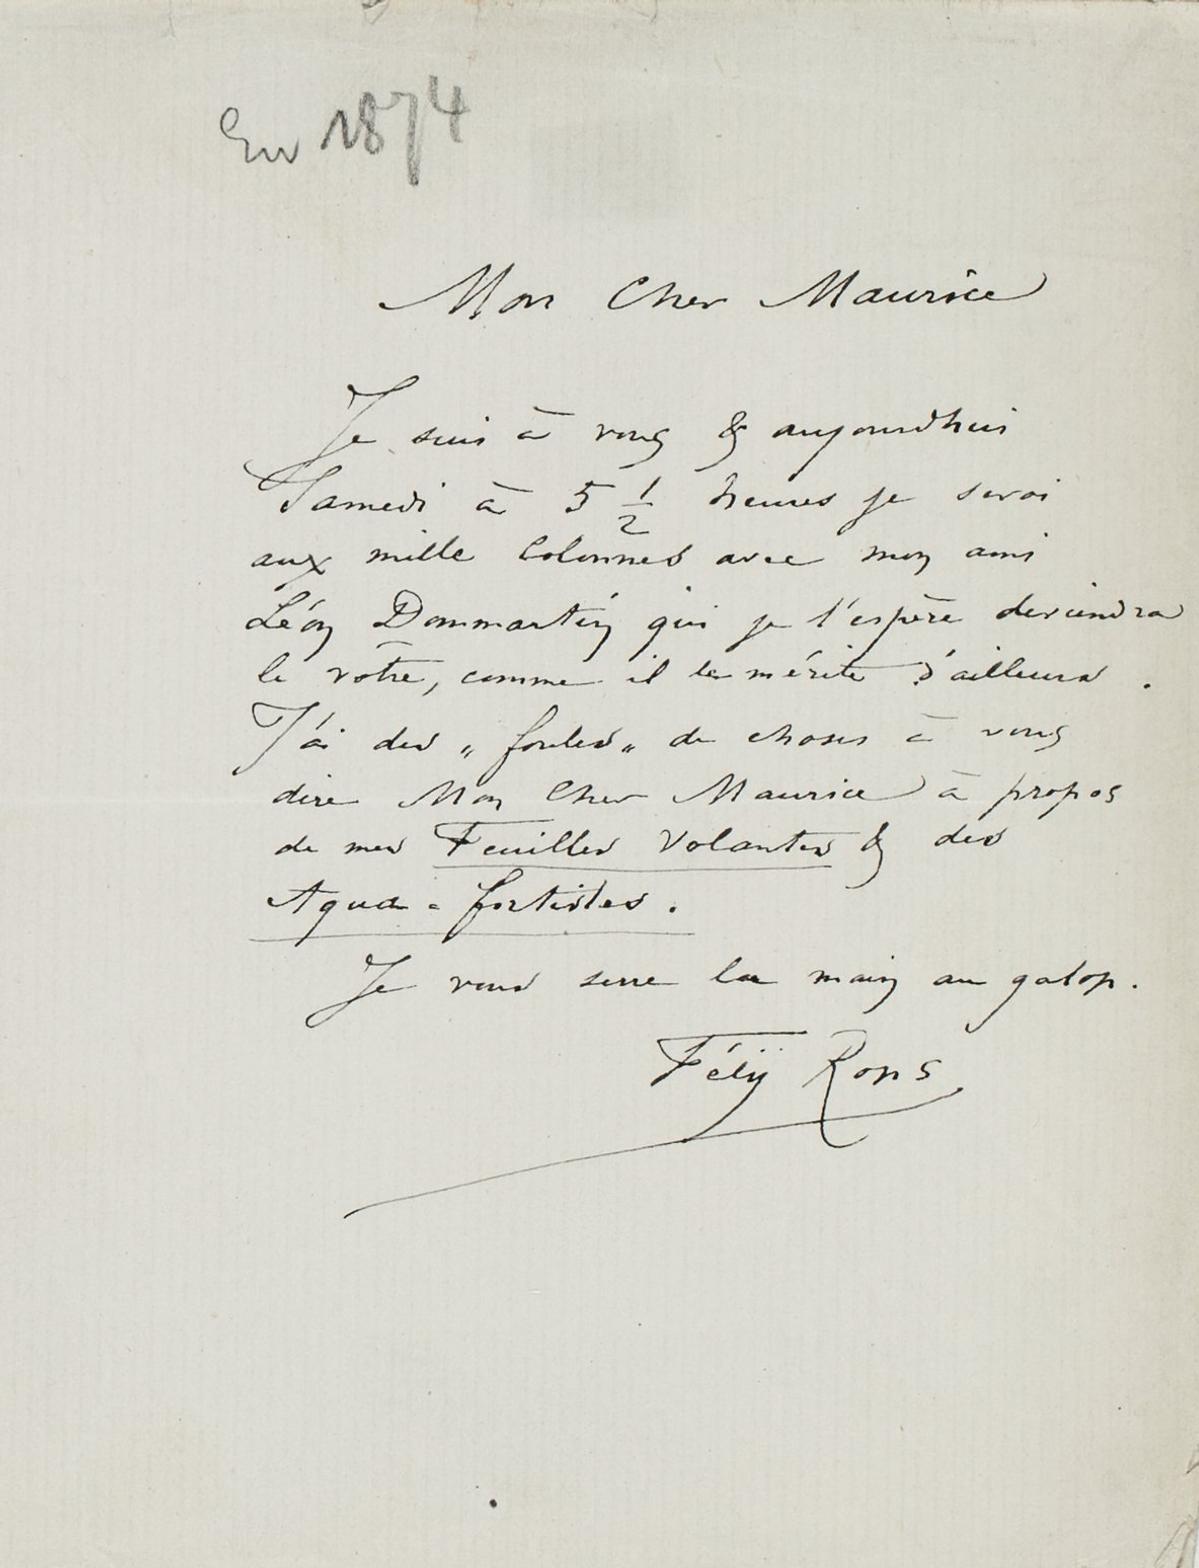 En 1874
Mon Cher Maurice
Je suis à vous & aujourdhui
Samedi à 5 1/2 heures je serai
aux mille Colonnes avec mon ami
Léon Dommartin qui je l'espère deviendra
le vôtre, comme il le mérite d'ailleurs.
J'ai des „foules„ de choses à vous
dire Mon Cher Maurice à propos
de mes Feuilles Volantes & des
Aqua-fortistes.
Je vous serre la main au galop.
Fély Rops